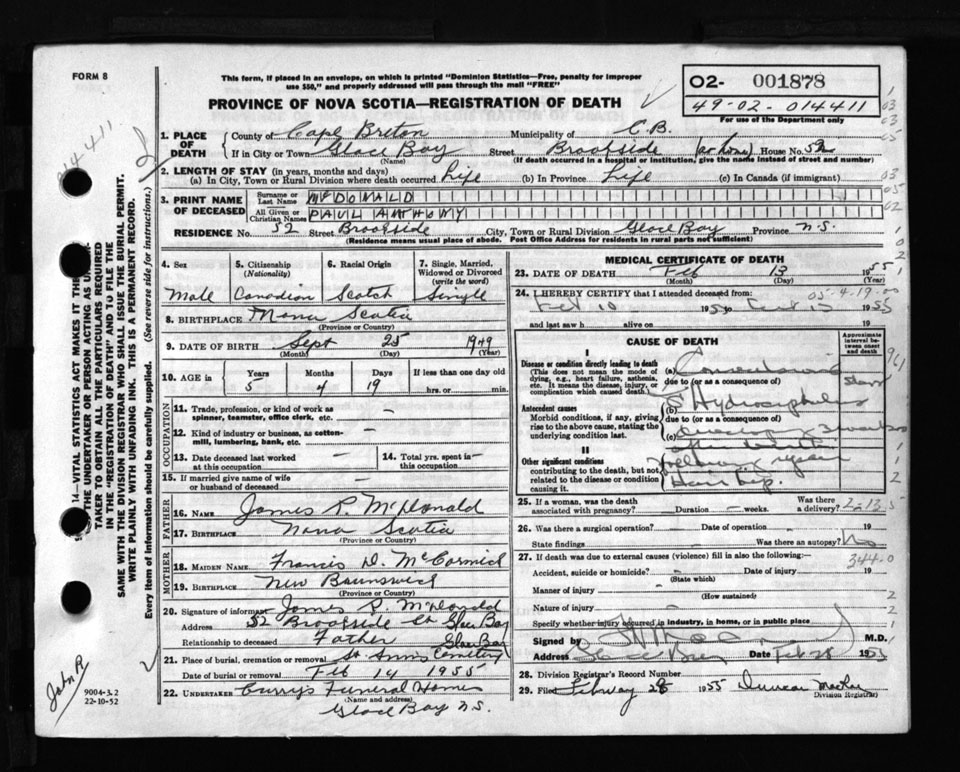 FORM 8
This form, if placed in an envelope, on which is printed "Dominion Statistics—Free, penalty for improper
use $50," and properly addressed will pass through the mail "FREE"
O2- 001878
49-02-014411
For use of the Department only
PROVINCE OF NOVA SCOTIA—REGISTRATION OF DEATH
014411
1. PLACE OF DEATH
County of Cape Breton Municipality of C.B.
If in City or Town Glace Bay Street Brookside (or home) House No. 52
(Name) (If death occurred in a hospital or institution, give the name instead of street and number)
2. LENGTH OF STAY (in years, months and days)
(a) In City, Town or Rural Division where death occurred Life (b) In Province Life (c) In Canada (if immigrant)
3. PRINT NAME OF DECEASED
Surname or Last Name McDONALD
All Given or Christian Names PAUL ANTHONY
RESIDENCE No. 52 Street Brookside City, Town or Rural Division Glace Bay Province N.S.
(Residence means usual place of abode. Post Office Address for residents in rural parts not sufficient)
4. Sex Male
5. Citizenship (Nationality) Canadian
6. Racial Origin Scotch
7. Single, Married, Widowed or Divorced (write the word) Single
8. BIRTHPLACE Nova Scotia
(Province or Country)
9. DATE OF BIRTH Sept 25 1949
(Month) (Day) (Year)
10. AGE in Years 5 Months 4 Days 19 If less than one day old hrs. or min.
OCCUPATION
11. Trade, profession, or kind of work as spinner, teamster, office clerk, etc. —
12. Kind of industry or business, as cotton-mill, lumbering, bank, etc. —
13. Date deceased last worked at this occupation —
14. Total yrs. spent in this occupation —
15. If married give name of wife or husband of deceased —
FATHER
16. NAME James R. McDonald
17. BIRTHPLACE Nova Scotia
(Province or Country)
MOTHER
18. MAIDEN NAME Francis D. McCormick
19. BIRTHPLACE New Brunswick
(Province or Country)
20. Signature of informant James R. McDonald
Address 52 Brookside St Glace Bay
Relationship to deceased Father Glace Bay
21. Place of burial, cremation or removal St. Anns Cemetery
Date of burial or removal Feb 14 1955
22. UNDERTAKER Curry's Funeral Home
(Name and address)
Glace Bay N.S.
MEDICAL CERTIFICATE OF DEATH
23. DATE OF DEATH Feb 13 1955
(Month) (Day)
24. I HEREBY CERTIFY that I attended deceased from 05-4-19-
Feb 10 1955 to 13 1955
and last saw h alive on 19
CAUSE OF DEATH
Approximate interval between onset and death
I
Disease or condition directly leading to death
(This does not mean the mode of dying, e.g., heart failure, asthenia, etc. It means the disease, injury, or complication which caused death.)
(a) Convulsions
due to (or as a consequence of)
Antecedent causes
Morbid conditions, if any, giving rise to the above cause, stating the underlying condition last.
(b) Hydrocephalus
due to (or as a consequence of)
(c)
II
Other significant conditions
contributing to the death, but not related to the disease or condition causing it.
Hare Lip.
25. If a woman, was the death associated with pregnancy? Duration — weeks. Was there a delivery?
2-13
26. Was there a surgical operation? — Date of operation 19
State findings — Was there an autopsy? No
27. If death was due to external causes (violence) fill in also the following:—
344.0
Accident, suicide or homicide? Date of injury 19
(State which)
Manner of injury
(How sustained)
Nature of injury
Specify whether injury occurred in industry, in home, or in public place
Signed by M.D.
Address Glace Bay Date Feb 28 1955
28. Division Registrar's Record Number
29. Filed February 28 1955 Duncan
Division Registrar
14—VITAL STATISTICS ACT MAKES IT THE
THE UNDERTAKER OR PERSON ACTING AS UNDER-
TAKER TO OBTAIN ALL THE PARTICULARS REQUIRED
IN THE "REGISTRATION OF DEATH" AND TO FILE THE
SAME WITH THE DIVISION REGISTRAR WHO SHALL ISSUE THE BURIAL PERMIT.
WRITE PLAINLY WITH UNFADING INK. THIS IS A PERMANENT RECORD.
Every item of information should be carefully supplied. (See reverse side for instructions.)
John R
9004-3.2
22-10-52